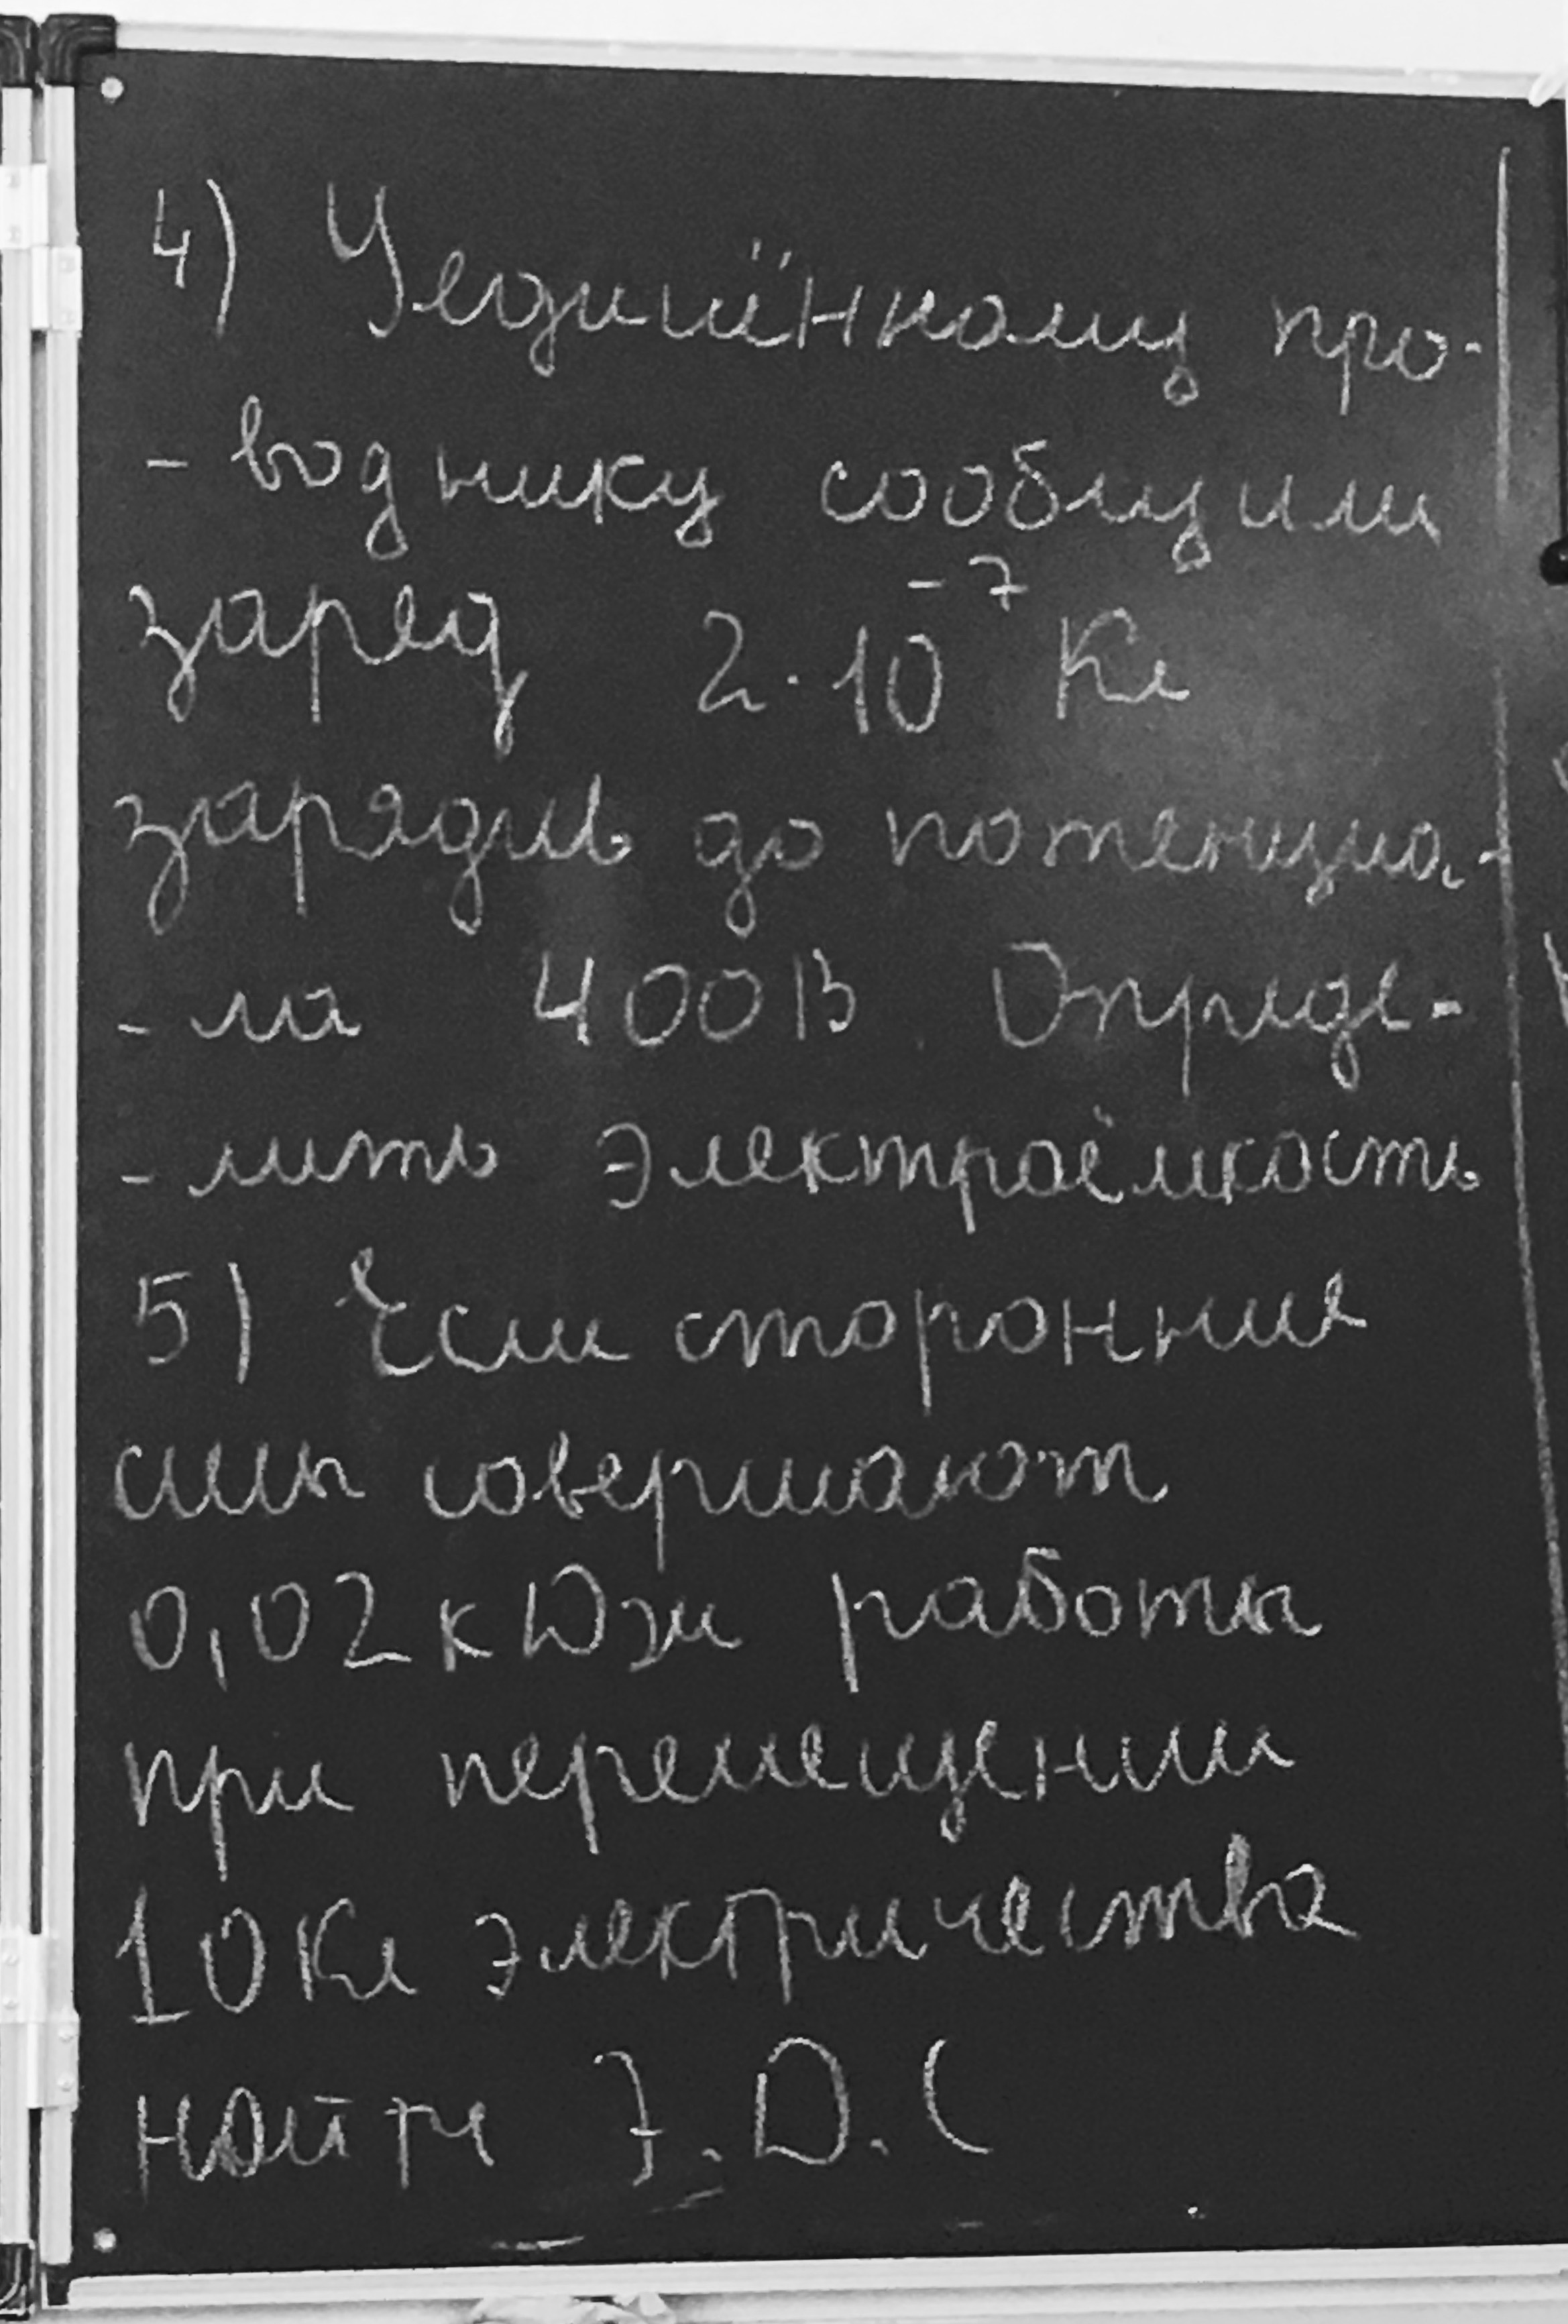 4) Уединённому про-
- воднику сообщили
заряд 2·10⁻⁷ Кл
зарядив до потенциа-
- ла 400В. Опреде-
- лить электроёмкость
5) Если сторонние
силы совершают
0,02 кДж работы
при перемещении
10 Кл электричества
найти Э.Д.С